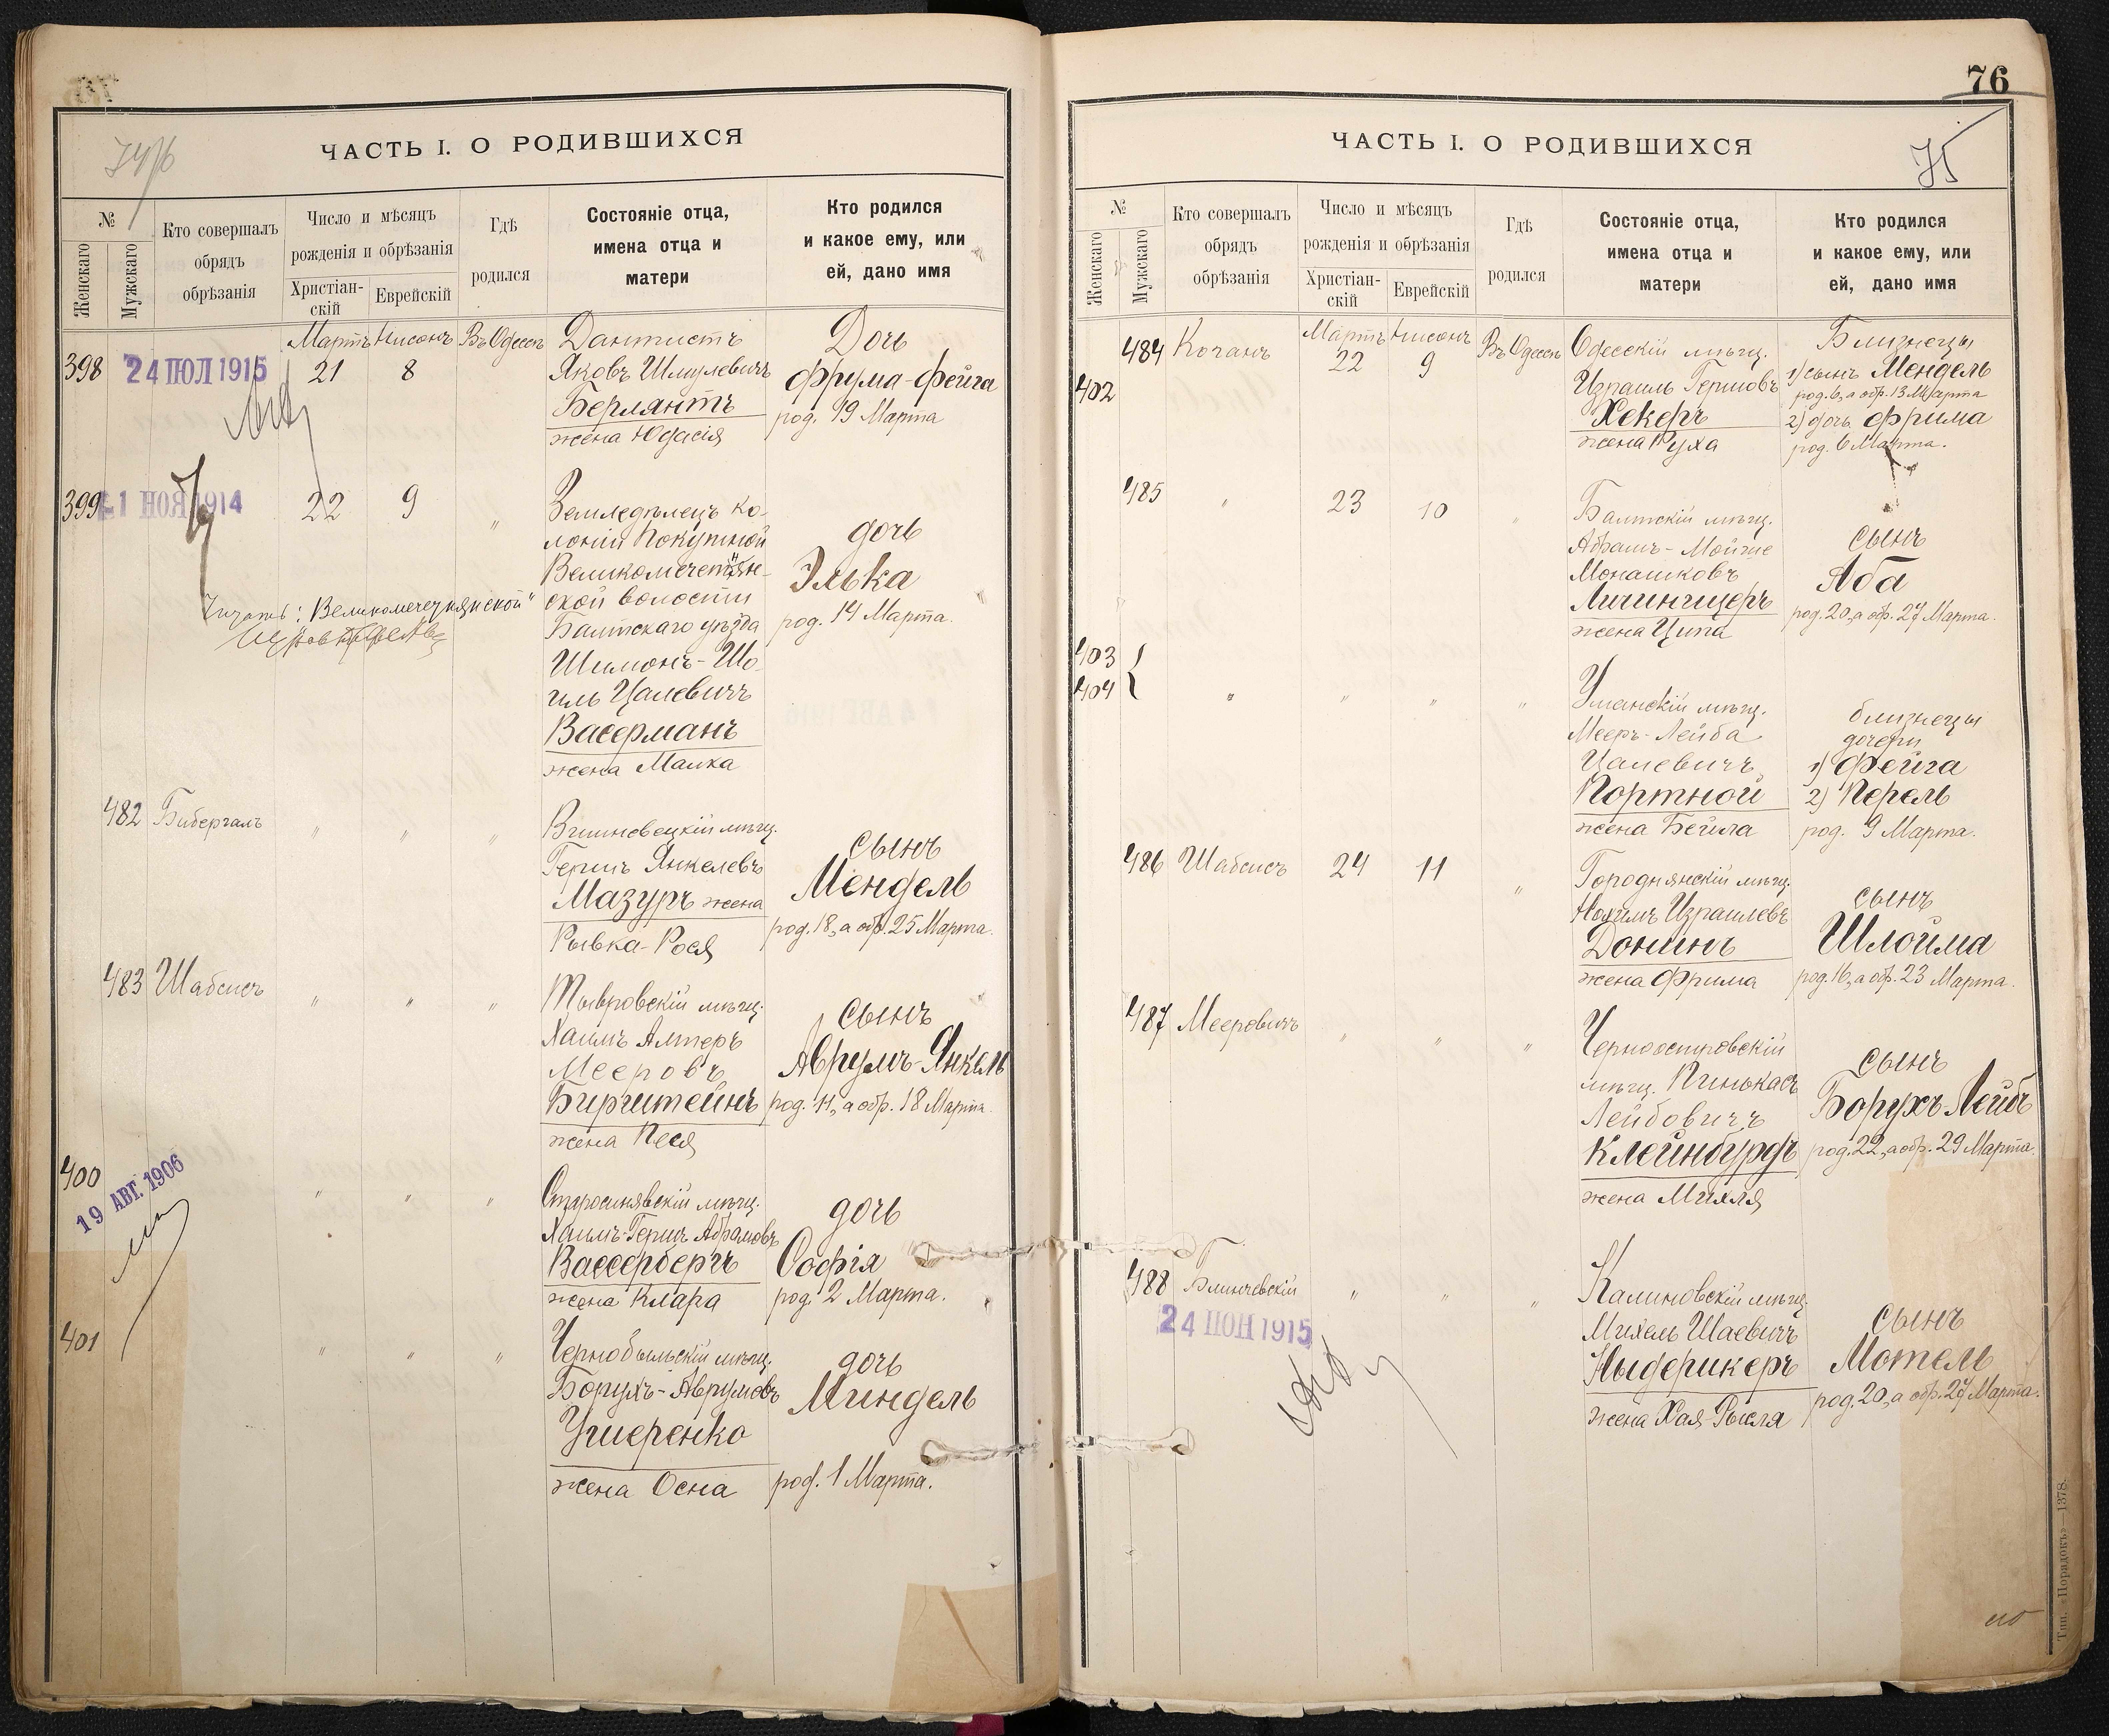 ЧАСТЬ I. О РОДИВШИХСЯ
№
Женскаго
Мужскаго
Кто совершалъ
обрядъ
обрѣзанія
Число и мѣсяцъ
рожденія и обрѣзанія
Христіан-
скій
Еврейскій
Гдѣ
родился
Состояніе отца,
имена отца и
матери
Кто родился
и какое ему, или
ей, дано имя
Мартъ Нисонъ Въ Одессѣ
398
24 ІЮЛ 1915
21 8
Дантистъ
Яковъ Шмулевичъ
Берлянтъ
жена Юдасія
Дочь
Фрума-Фейга
род. 19 Марта
399
1 НОЯ 1914
22 9 "
Земледѣлецъ ко-
лоніи Покутной
Великомечетян-
ской волости
Балтскаго уѣзда
Шимонъ-Шо-
иль Цалевичъ
Васерманъ
жена Малка
дочь
Элька
род. 14 Марта.
Читать: "Великомечетнянской"
482 Бибергалъ " " "
Вишневецкій мѣщ.
Гершъ Янкелевъ
Мазуръ жена
Рывка-Рося
сынъ
Мендель
род. 18, а обр. 25 Марта.
483 Шабсисъ " " "
Тывровскій мѣщ.
Хаимъ Алтеръ
Мееровъ
Бирштейнъ
жена Песя
сынъ
Аврумъ-Янкель
род. 11, а обр. 18 Марта.
400
19 АВГ. 1906
" " "
Старосинявскій мѣщ.
Хаимъ-Гершъ Абрамовъ
Вассербергъ
жена Клара
дочь
Софія
род. 2 Марта.
401 " " "
Чернобыльскій мѣщ.
Борухъ-Аврумовъ
Ушеренко
жена Осна
дочь
Миндель
род. 1 Марта.
76
ЧАСТЬ I. О РОДИВШИХСЯ
75
№
Женскаго
Мужскаго
Кто совершалъ
обрядъ
обрѣзанія
Число и мѣсяцъ
рожденія и обрѣзанія
Христіан-
скій
Еврейскій
Гдѣ
родился
Состояніе отца,
имена отца и
матери
Кто родился
и какое ему, или
ей, дано имя
Мартъ Нисонъ
484 Коганъ 22 9 Въ Одессѣ
402
Одесскій мѣщ.
Израиль Гершовъ
Хекеръ
жена Руха
Близнецы
1) сынъ Мендель
род. 6, а обр. 13 Марта
2) дочь Фрима
род. 6 Марта.
485 " 23 10 "
Балтскій мѣщ.
Абрамъ-Мойше
Монашковъ
Личингцеръ
жена Ципа
сынъ
Аба
род. 20, а обр. 27 Марта.
403
404
" " " "
Уманскій мѣщ.
Мееръ-Лейба
Цалевичъ
Портной
жена Бейла
близнецы
дочери
1) Фейга
2) Перель
род. 9 Марта.
486 Шабсисъ 24 11 "
Городнянскій мѣщ.
Нохимъ Израилевъ
Донинъ
жена Фрима
сынъ
Шлойма
род. 16, а обр. 23 Марта.
487 Мееровичъ " " "
Черноостровскій
мѣщ. Пинькасъ
Лейбовичъ
Клейнбурдъ
жена Михля
сынъ
Борухъ Лейбъ
род. 22, а обр. 29 Марта.
488 Блинчевскій " " "
24 ІЮН 1915
Калиновскій мѣщ.
Михель Шаевичъ
Ныдерикеръ
жена Хая-Рысля
сынъ
Мотель
род. 20, а обр. 27 Марта.
Тип. «Порядокъ»—1378.